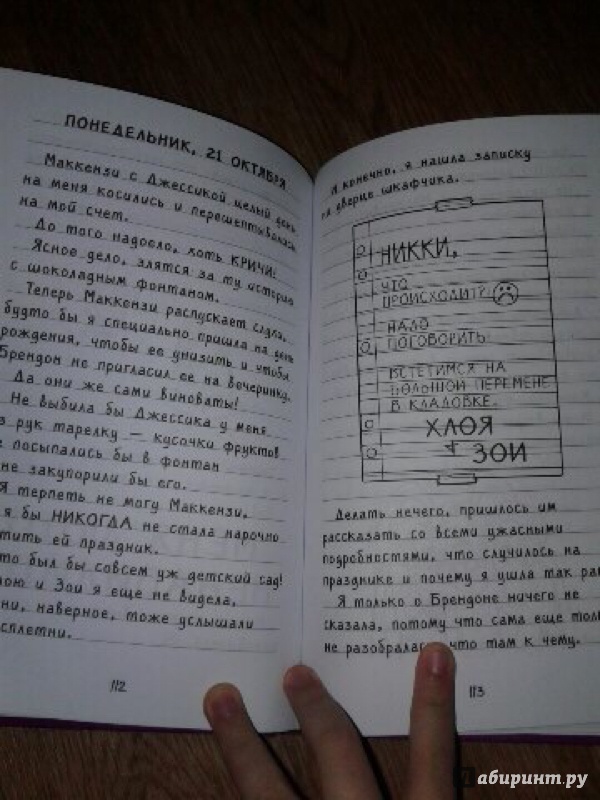 ПОНЕДЕЛЬНИК, 21 ОКТЯБРЯ
Маккензи с Джессикой целый день
на меня косились и перешептывались
на мой счет.
До того надоело, хоть КРИЧИ!
Ясное дело, злятся за ту историю
с шоколадным фонтаном.
Теперь Маккензи распускает слухи,
будто бы я специально пришла на день
рождения, чтобы ее унизить и чтобы
Брендон не пригласил ее на вечеринку.
Да они же сами виноваты!
Не выбила бы Джессика у меня
з рук тарелку — кусочки фруктов
е посыпались бы в фонтан
не закупорили бы его.
Я терпеть не могу Маккензи,
я бы НИКОГДА не стала нарочно
тить ей праздник.
то был бы совсем уж детский сад!
лою и Зои я еще не видела,
ни, наверное, тоже услышали
сплетни.
112
И конечно, я нашла записку
на дверце шкафчика.
НИККИ,
ЧТО
ПРОИСХОДИТ?
НАДО
ПОГОВОРИТЬ.
ВСТЕТИМСЯ НА
БОЛЬШОЙ ПЕРЕМЕНЕ
В КЛАДОВКЕ.
ХЛОЯ
+ ЗОИ
Делать нечего, пришлось им
рассказать со всеми ужасными
подробностями, что случилось на
празднике и почему я ушла так ран
Я только о Брендоне ничего не
сказала, потому что сама еще толк
не разобралась что там к чему.
113
Лабиринт.ру